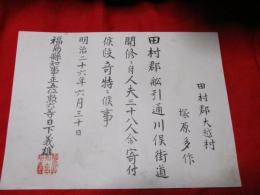 田村郡大越村
塚原多作
田村郡舩引通川俣街道
開修ノ日人夫三十八人分寄付
候段奇特ニ候事
明治二十六年六月三十日
福島縣知事正五位勲六等日下義雄